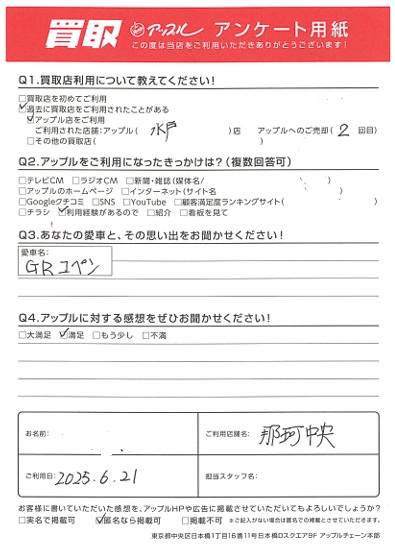 買取 アップル アンケート用紙
この度は当店をご利用いただきありがとうございます!
Q1.買取店利用について教えてください!
□買取店を初めてご利用
☑過去に買取店をご利用されたことがある
☑アップル店をご利用
ご利用された店舗:アップル( 水戸 )店 アップルへのご売却( 2 回目)
□その他の買取店( )
Q2.アップルをご利用になったきっかけは?(複数回答可)
□テレビCM □ラジオCM □新聞・雑誌(媒体名/ )
□アップルのホームページ □インターネット(サイト名 )
□Googleクチコミ □SNS □YouTube □顧客満足度ランキングサイト( )
□チラシ ☑利用経験があるので □紹介 □看板を見て
Q3.あなたの愛車と、その思い出をお聞かせください!
愛車名:
GRコペン
Q4.アップルに対する感想をぜひお聞かせください!
□大満足 ☑満足 □もう少し □不満
お名前: ご利用店舗名: 那珂中央
ご利用日: 2025.6.21 担当スタッフ名:
お客様に書いていただいた感想を、アップルHPや広告に掲載させていただいてもよろしいでしょうか?
□実名で掲載可 ☑匿名なら掲載可 □掲載不可 ※ご記入がない場合は匿名での掲載とさせていただきます。
東京都中央区日本橋1丁目16番11号日本橋Dスクエア9F アップルチェーン本部